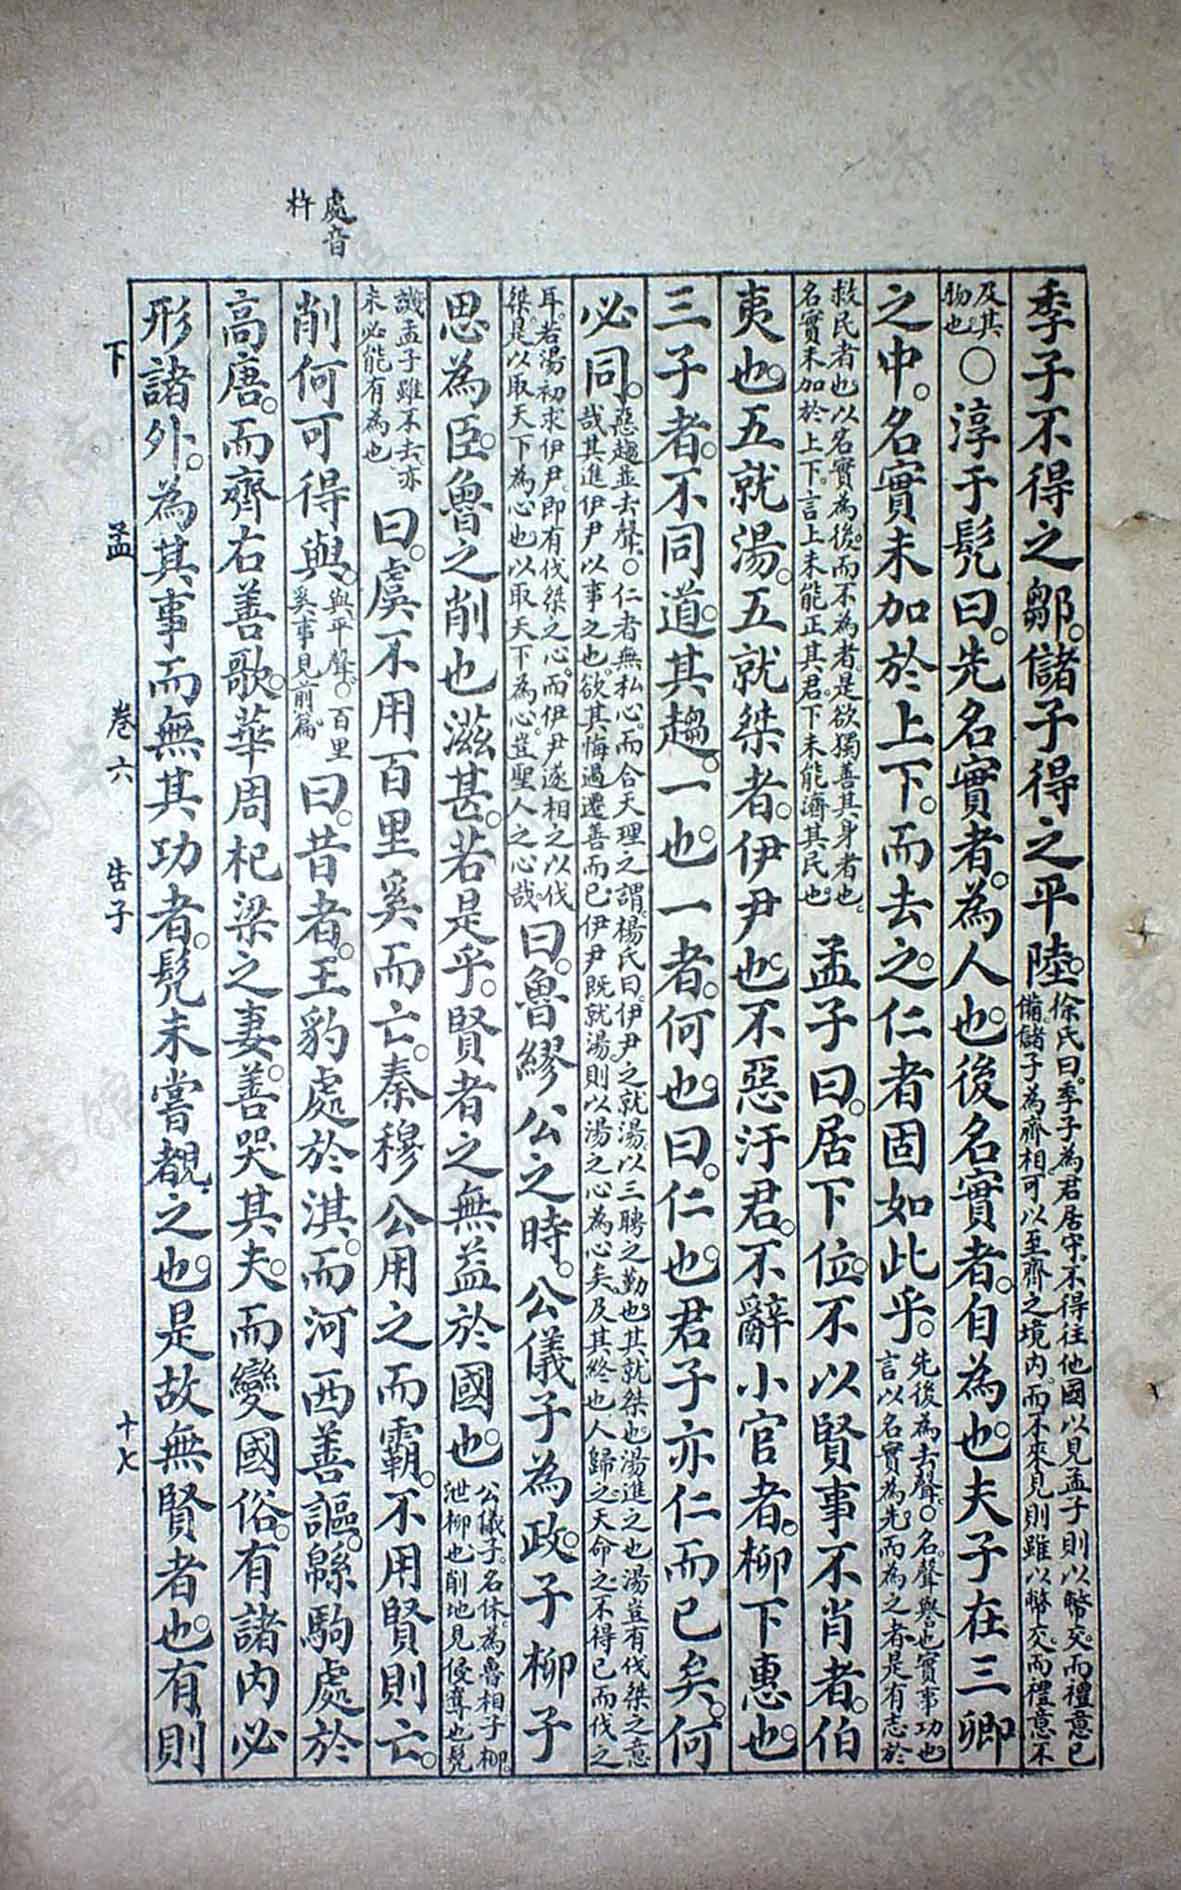 處音
杵
季子不得之鄒。儲子得之平陸。
徐氏曰。季子為君居守。不得往他國以見孟子則以幣交。而禮意已
備。儲子為齊相可以至齊之境內。而不來見則雖以幣交。而禮意不
及其
物也。
○淳于髡曰。先名實者。為人也。後名實者。自為也。夫子在三卿
之中。名實未加於上下。而去之。仁者固如此乎。
先後為去聲。○名聲譽也實事功也
言以名實為先而為之者是有志於
救民者也以名實為後。而不為者。是欲獨善其身者也。
名實未加於上下。言上未能正其君。下未能濟其民也。
孟子曰。居下位。不以賢事不肖者。伯
夷也。五就湯。五就桀者。伊尹也。不惡汙君。不辭小官者。柳下惠也。
三子者。不同道。其趨。一也。一者。何也。曰。仁也。君子亦仁而已矣。何
必同。
惡趨並去聲。○仁者無私心。而合天理之謂。楊氏曰。伊尹之就湯。以三聘之勤也。其就桀也。湯進之也。湯豈有伐桀之意
哉其進伊尹以事之也。欲其悔過遷善而已伊尹既就湯則以湯之心為心矣。及其終也。人歸之。天命之。不得已而伐之
耳。若湯初求伊尹。即有伐桀之心。而伊尹遂相之以伐
桀。是以取天下為心也以取天下為心。豈聖人之心哉。
曰。魯繆公之時。公儀子為政。子柳子
思為臣。魯之削也滋甚。若是乎。賢者之無益於國也。
公儀子。名休。為魯相子柳。
泄柳也。削地見侵奪也髡
譏孟子雖不去亦
未必能有為也
曰。虞不用百里奚而亡。秦穆公用之而霸。不用賢則亡。
削何可得與。
與平聲。○百里
奚事見前篇。
曰。昔者。王豹處於淇。而河西善謳。緜駒處於
高唐。而齊右善歌。華周杞梁之妻。善哭其夫。而變國俗。有諸內必
形諸外。為其事而無其功者。髡未嘗覩之也。是故無賢者也。有則
下孟 卷六 告子 十七